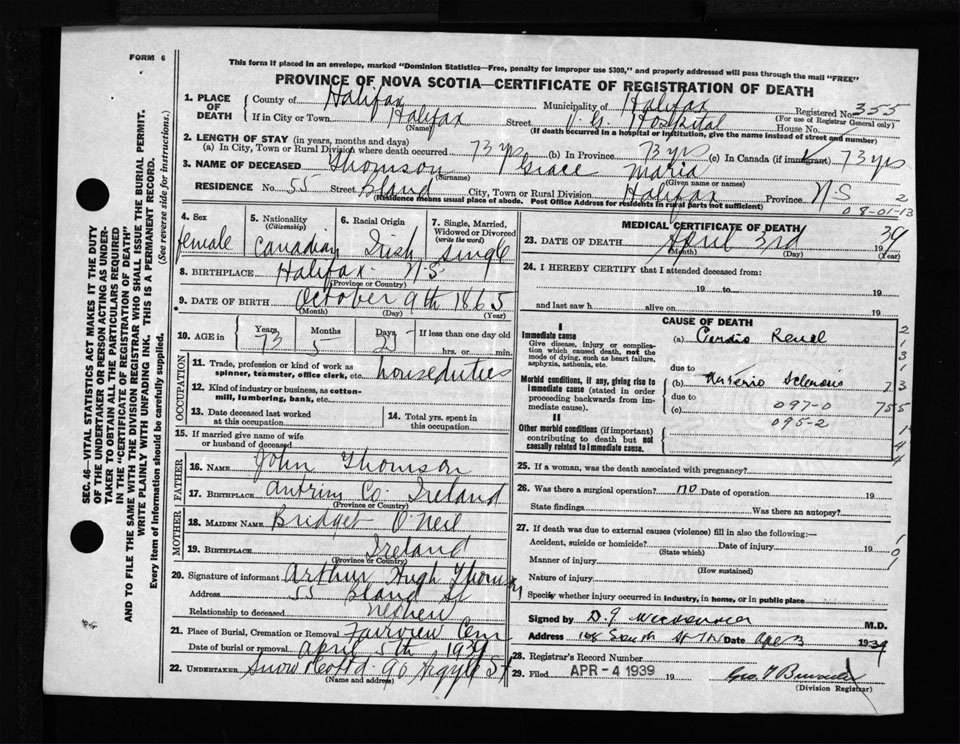 FORM 6
This form if placed in an envelope, marked "Dominion Statistics—Free, penalty for improper use $300," and properly addressed will pass through the mail "FREE"
PROVINCE OF NOVA SCOTIA—CERTIFICATE OF REGISTRATION OF DEATH
1. PLACE OF DEATH County of Halifax Municipality of Halifax Registered No. 355
(For use of Registrar General only)
If in City or Town Halifax Street V. G. Hospital House No.
(Name) (If death occurred in a hospital or institution, give the name instead of street and number)
2. LENGTH OF STAY (in years, months and days)
(a) In City, Town or Rural Division where death occurred 73 yrs (b) In Province 73 yrs (c) In Canada (if immigrant) 73 yrs
3. NAME OF DECEASED Thomson Grace Maria
(Surname) (Given name or names)
RESIDENCE No. 55 Street Bland City, Town or Rural Division Halifax Province N.S 2
(Residence means usual place of abode. Post Office Address for residents in rural parts not sufficient)
08-01-13
4. Sex female
5. Nationality (Citizenship) Canadian
6. Racial Origin Irish
7. Single, Married, Widowed or Divorced (write the word) Single
8. BIRTHPLACE Halifax N.S.
(Province or Country)
9. DATE OF BIRTH October 9th 1865
(Month) (Day) (Year)
10. AGE in Years 73 Months 5 Days If less than one day old hrs. or min.
OCCUPATION
11. Trade, profession or kind of work as spinner, teamster, office clerk, etc. houseduties
12. Kind of industry or business, as cotton-mill, lumbering, bank, etc.
13. Date deceased last worked at this occupation
14. Total yrs. spent in this occupation
15. If married give name of wife or husband of deceased
FATHER
16. NAME John Thomson
17. BIRTHPLACE Antrim Co. Ireland
(Province or Country)
MOTHER
18. MAIDEN NAME Bridget O'Neil
19. BIRTHPLACE Ireland
(Province or Country)
20. Signature of informant Arthur Hugh Thomson
Address 55 Bland St
Relationship to deceased nephew
21. Place of Burial, Cremation or Removal Fairview Cem
Date of burial or removal April 5th 1939
22. UNDERTAKER Snow & Co Ltd. 90 Argyle St
(Name and address)
MEDICAL CERTIFICATE OF DEATH
23. DATE OF DEATH April 3rd 1939
(Month) (Day) (Year)
24. I HEREBY CERTIFY that I attended deceased from:
19 to 19
and last saw h alive on 19
CAUSE OF DEATH
I
Immediate cause
Give disease, injury or complication which caused death, not the mode of dying, such as heart failure, asphyxia, asthenia, etc.
(a) Cardio Renal
due to
Morbid conditions, if any, giving rise to immediate cause (stated in order proceeding backwards from immediate cause).
(b) Arterio Sclerosis
due to
(c) 097-0
095-2
II
Other morbid conditions (if important) contributing to death but not causally related to immediate cause.
25. If a woman, was the death associated with pregnancy?
26. Was there a surgical operation? no Date of operation 19
State findings Was there an autopsy?
27. If death was due to external causes (violence) fill in also the following:—
Accident, suicide or homicide? Date of injury 19
(State which)
Manner of injury
(How sustained)
Nature of injury
Specify whether injury occurred in industry, in home, or in public place
Signed by D. J. M.D.
Address 168 South St Date Apr 3 1939
28. Registrar's Record Number
29. Filed APR - 4 1939 19
(Division Registrar)
SEC. 46—VITAL STATISTICS ACT MAKES IT THE DUTY
OF THE UNDERTAKER OR PERSON ACTING AS UNDER-
TAKER TO OBTAIN ALL THE PARTICULARS REQUIRED
IN THE "CERTIFICATE OF REGISTRATION OF DEATH"
AND TO FILE THE SAME WITH THE DIVISION REGISTRAR WHO SHALL ISSUE THE BURIAL PERMIT.
WRITE PLAINLY WITH UNFADING INK. THIS IS A PERMANENT RECORD.
Every item of information should be carefully supplied. (See reverse side for instructions.)